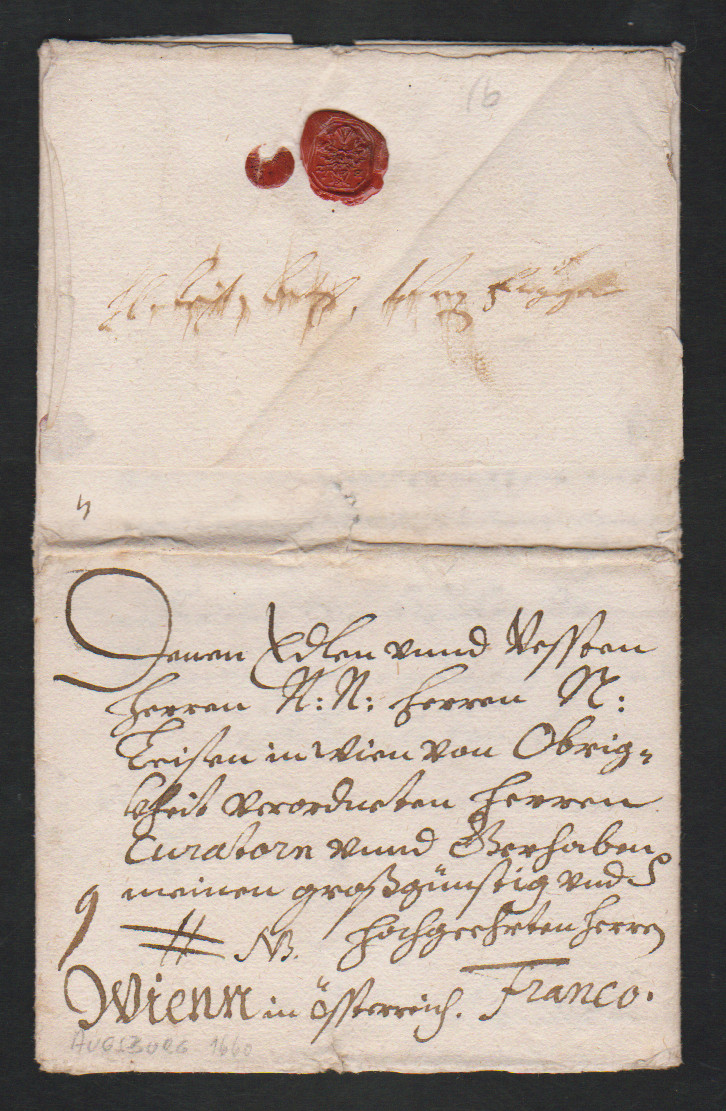 16
4
Denen Edlen vnnd Vessten
Herren N: N: Herren N:
Leisen in Wien von Obrig=
kheit verordneten Herren
Curatorn vnnd Gerhaben
meinen großgünstig vnd
NB. hochgeehrten Herren
Wienn in Össterreich. Franco.
AUGSBURG 1660